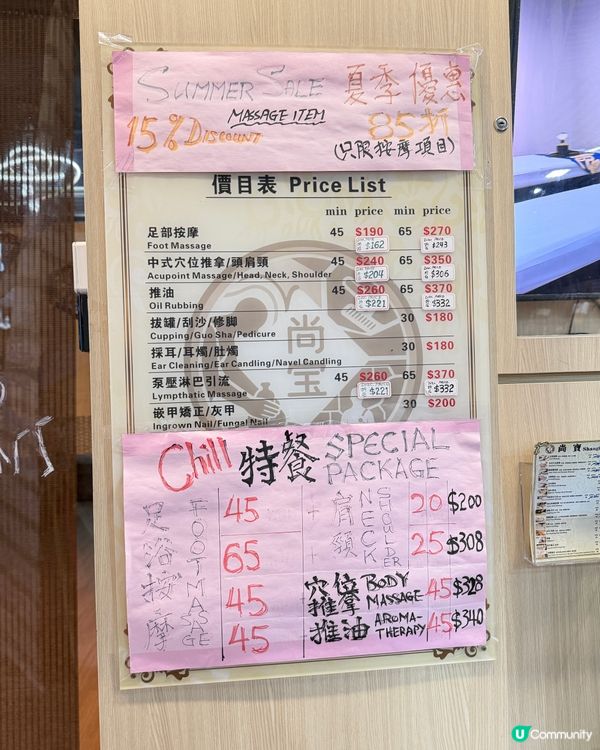 SUMMER SALE 夏季優惠
15% DISCOUNT MASSAGE ITEM 85折
(只限按摩項目)
價目表 Price List
min price min price
足部按摩 45 $190 65 $270
Foot Massage $162 $243
中式穴位推拿/頭肩頸 45 $240 65 $350
Acupoint Massage/Head, Neck, Shoulder $204 $306
推油 45 $260 65 $370
Oil Rubbing $221 $332
拔罐/刮沙/修脚 30 $180
Cupping/Guo Sha/Pedicure
採耳/耳燭/肚燭 30 $180
Ear Cleaning/Ear Candling/Navel Candling
泵壓淋巴引流 45 $260 65 $370
Lympthatic Massage $221 $332
嵌甲矯正/灰甲 30 $200
Ingrown Nail/Fungal Nail
尚宝
Chill 特餐 SPECIAL PACKAGE
足浴按摩 FOOT MASSAGE
45 + 肩頸 NECK SHOULDER 20 $200
65 + 25 $308
45 穴位推拿 BODY MASSAGE 45 $328
45 推油 AROMA-THERAPY 45 $340
尚寶
U Community